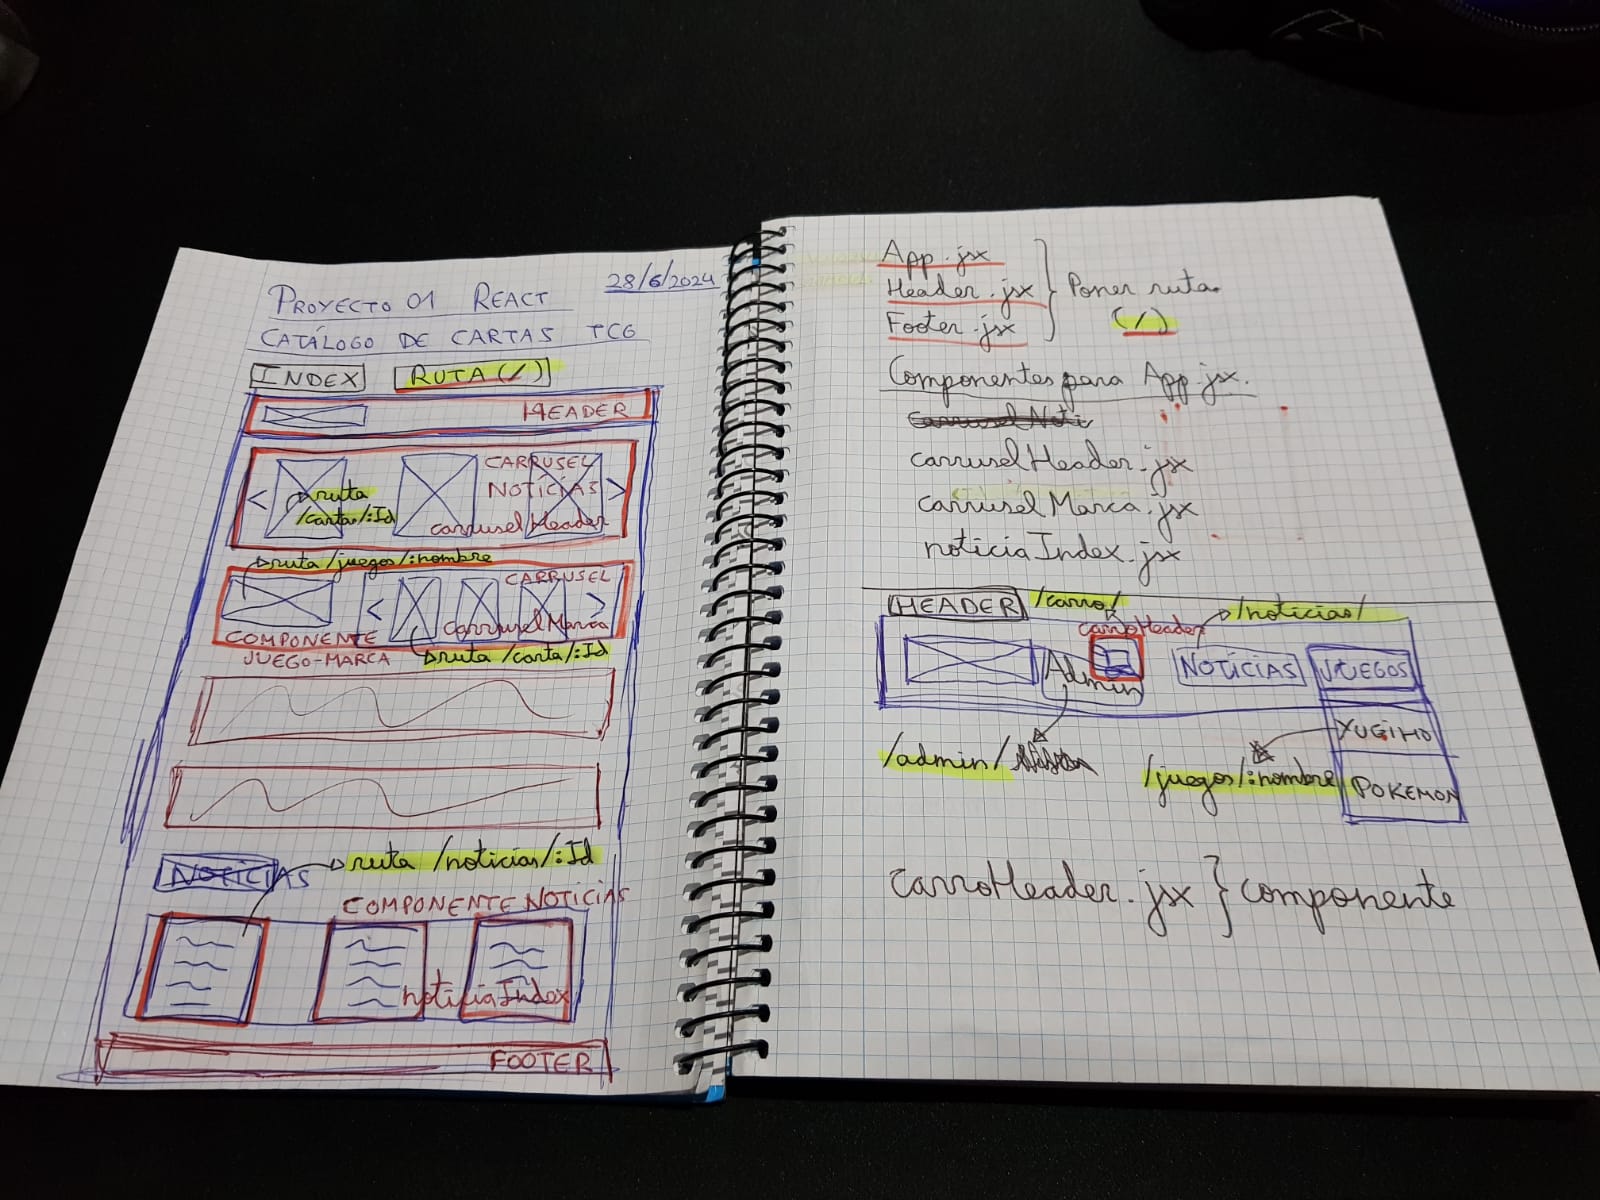 28/6/2024
PROYECTO 01 REACT
CATÁLOGO DE CARTAS TCG
INDEX RUTA (/)
HEADER
CARRUSEL
NOTÍCIAS
ruta
/cartas/:Id
carruselHeader
ruta /juegos/:nombre
CARRUSEL
carruselMarca
COMPONENTE
JUEGO-MARCA
ruta /carta/:Id
NOTICIAS
ruta /noticias/:Id
COMPONENTE NOTICIAS
noticiaIndex
FOOTER
App.jsx
Header.jsx
Footer.jsx
} Poner ruta
(/)
Componentes para App.jsx.
carruselNoti
carruselHeader.jsx
carruselMarca.jsx
noticiaIndex.jsx
HEADER
/carro/
/noticias/
carroHeader
Admin
NOTÍCIAS
JUEGOS
YUGIHO
POKEMON
/admin/
/juegos/:nombre
carroHeader.jsx } componente